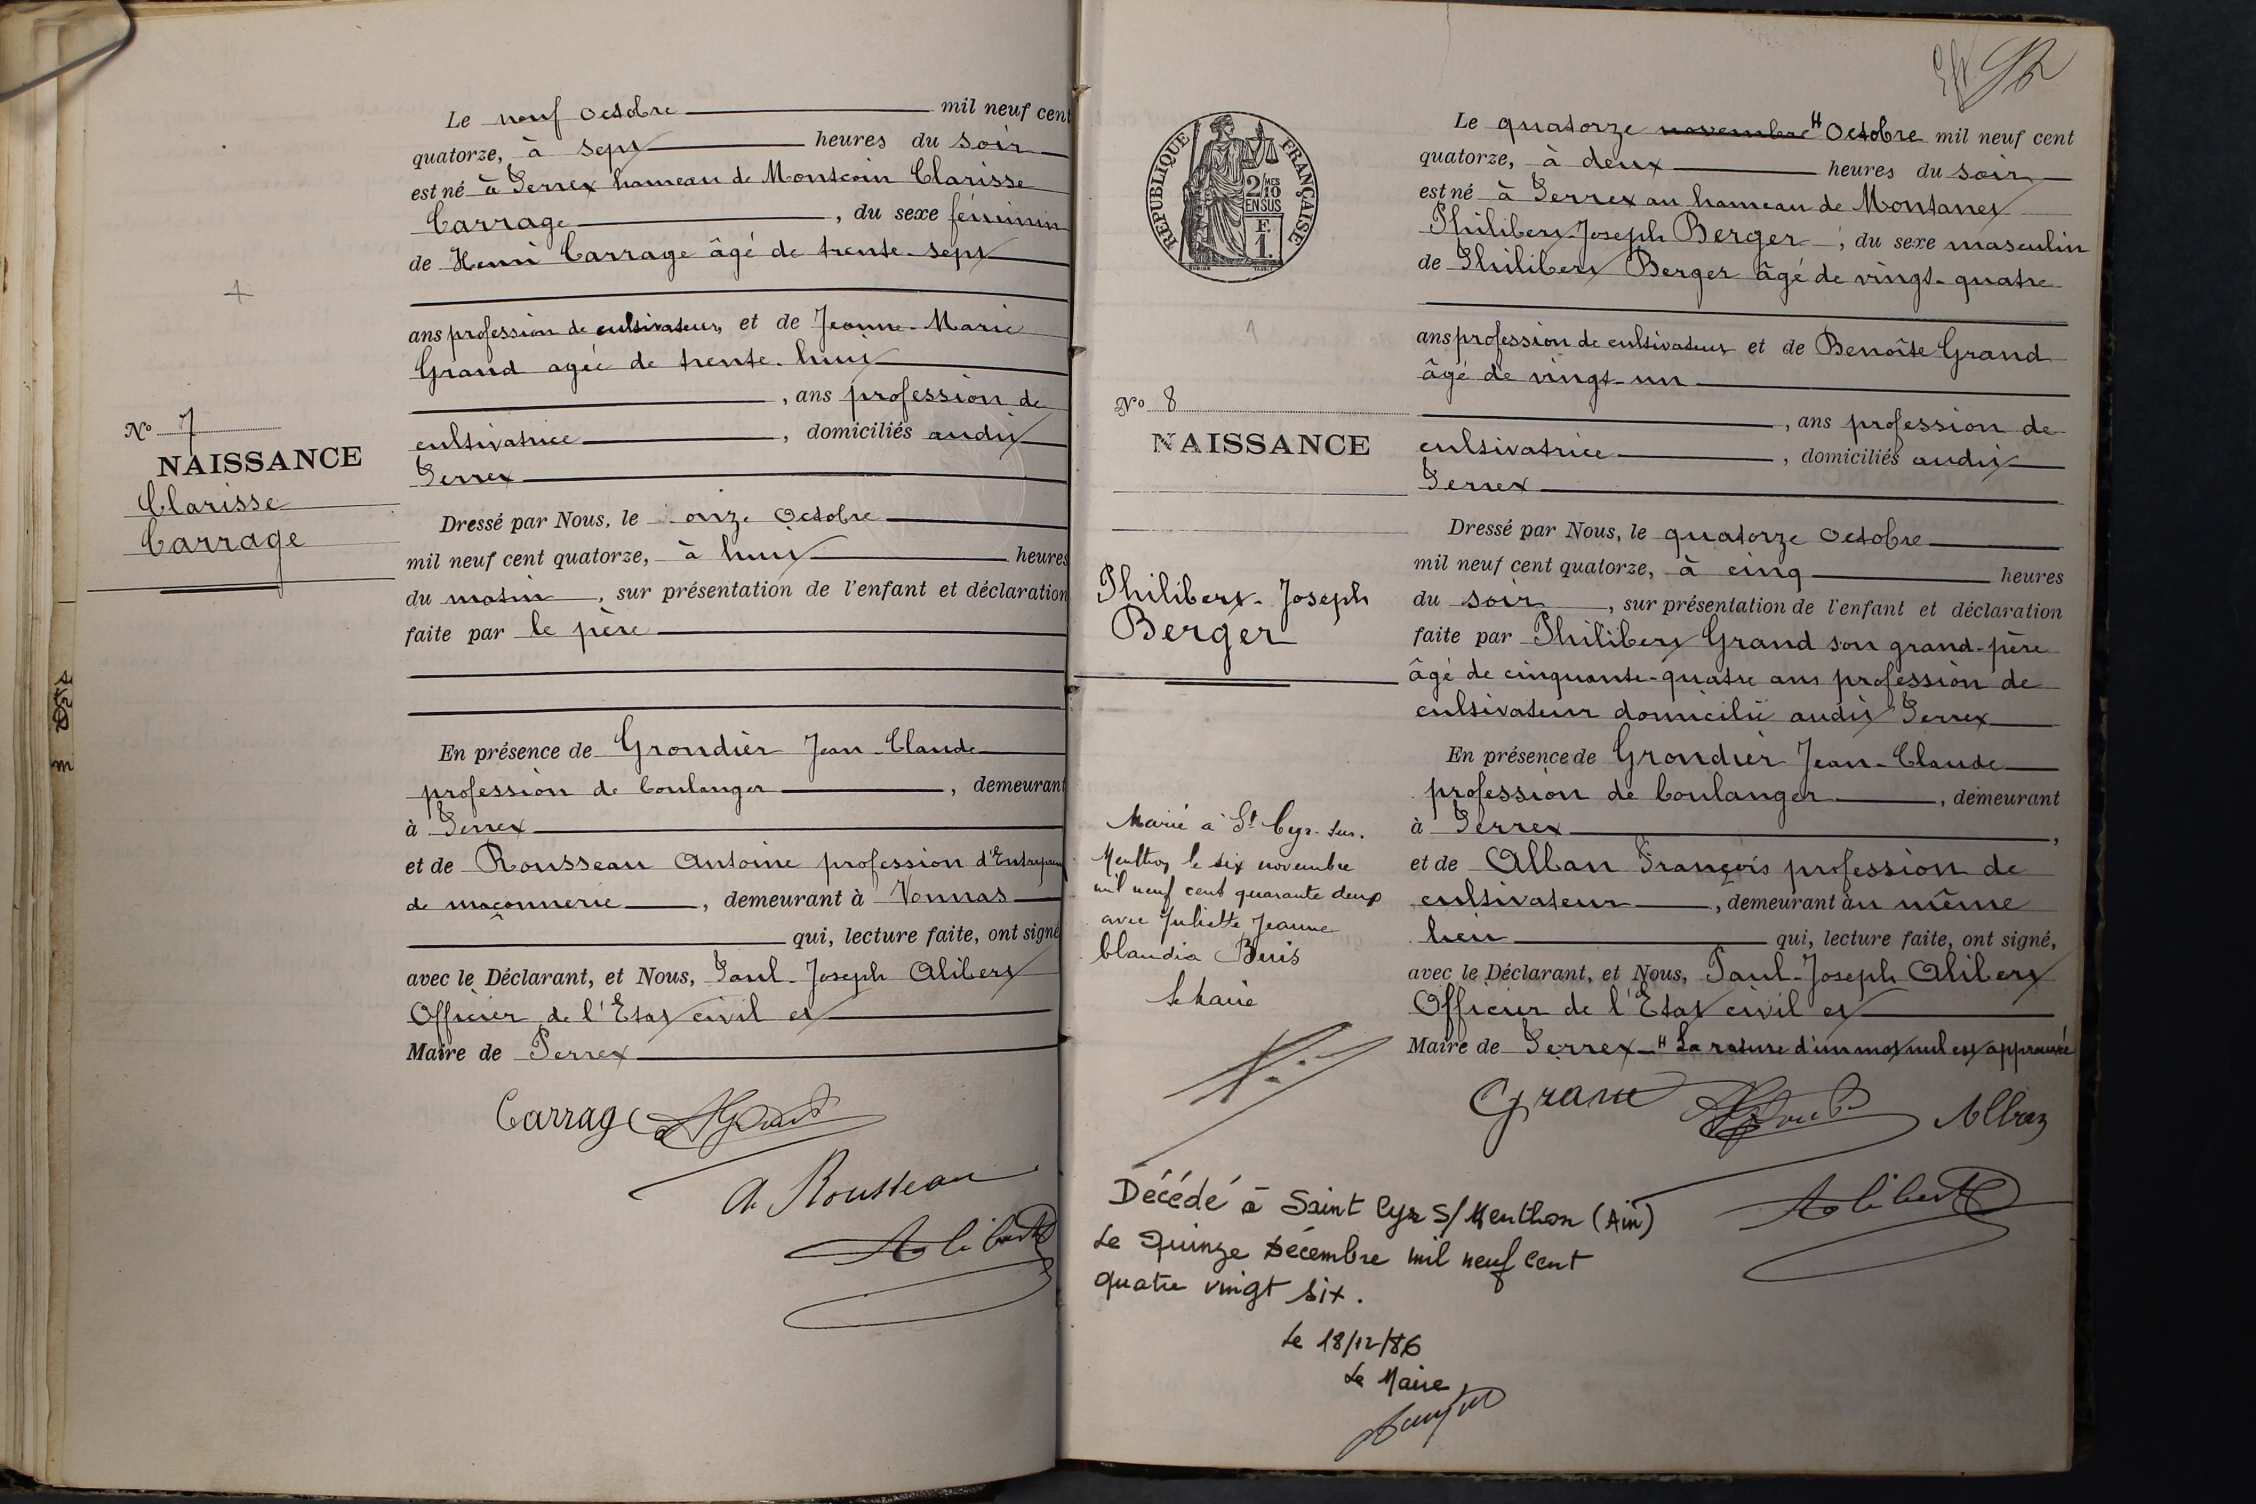 Le neuf Octobre mil neuf cent
quatorze, à sept heures du soir
est né à Perrex hameau de Montcoin Clarisse
Carrage, du sexe féminin
de Henri Carrage âgé de trente-sept
ans profession de cultivateur, et de Jeanne-Marie
Grand agée de trente-huit
, ans profession de
cultivatrice, domiciliés audit
Perrex
No 7
NAISSANCE
Clarisse
Carrage
Dressé par Nous, le onze Octobre
mil neuf cent quatorze, à huit heures
du matin, sur présentation de l'enfant et déclaration
faite par le père
En présence de Grondier Jean-Claude
profession de boulanger, demeurant
à Perrex
et de Rousseau Antoine profession d'Entrepreneur
de maçonnerie, demeurant à Vonnas
qui, lecture faite, ont signé
avec le Déclarant, et Nous, Paul-Joseph Alibert
Officier de l'Etat civil et
Maire de Perrex
Carrage
A. Rousseau
Alibert
RÉPUBLIQUE FRANÇAISE
2/10 MES
EN SUS
F.
1.
Le quatorze novembre # Octobre mil neuf cent
quatorze, à deux heures du soir
est né à Perrex au hameau de Montanet
Philibert-Joseph Berger, du sexe masculin
de Philibert Berger âgé de vingt-quatre
ans profession de cultivateur et de Benoîte Grand
âgé de vingt-un
, ans profession de
cultivatrice, domiciliés audit
Perrex
No 8
NAISSANCE
Philibert-Joseph
Berger
Dressé par Nous, le quatorze Octobre
mil neuf cent quatorze, à cinq heures
du soir, sur présentation de l'enfant et déclaration
faite par Philibert Grand son grand-père
âgé de cinquante-quatre ans profession de
cultivateur domicilié audit Perrex
En présence de Grondier Jean-Claude
profession de boulanger, demeurant
à Perrex,
et de Alban François profession de
cultivateur, demeurant au même
lieu qui, lecture faite, ont signé,
avec le Déclarant, et Nous, Paul-Joseph Alibert
Officier de l'Etat civil et
Maire de Perrex # La rature d'un mot nul est approuvée
Grand
Alban
Alibert
Marié à St Cyr-sur-
Menthon le six novembre
mil neuf cent quarante deux
avec Juliette Jeanne
Claudia Buis
Le Maire
Décédé à Saint Cyr S/ Menthon (Ain)
Le Quinze Décembre mil neuf cent
quatre vingt six.
Le 18/12/86
Le Maire